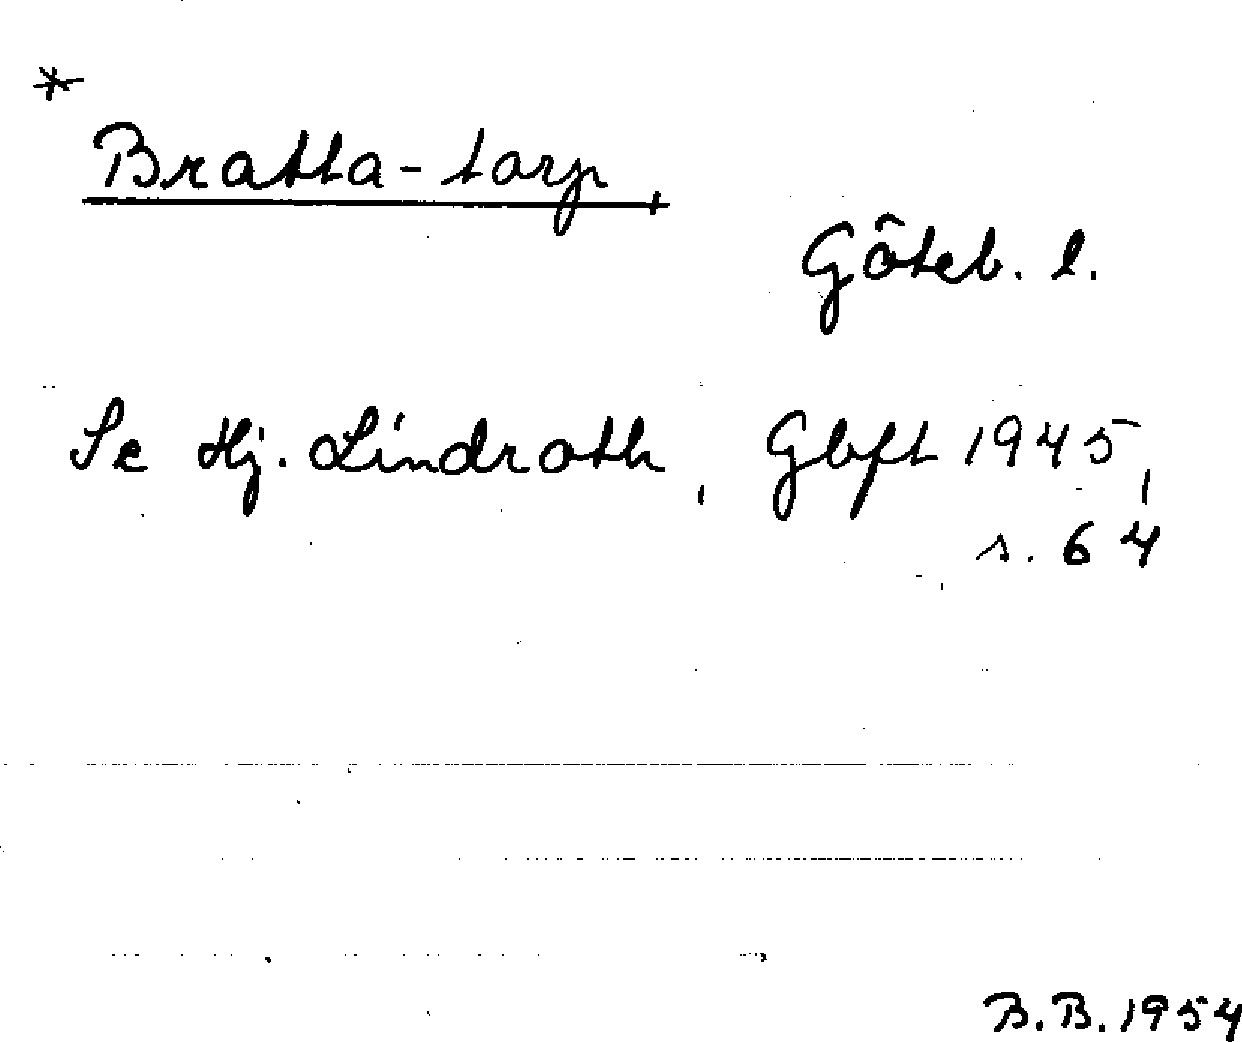 * Bratta-torp,
Göteb. l.
Se Hj. Lindroth, Gbft 1945,
s. 64
B.B. 1954